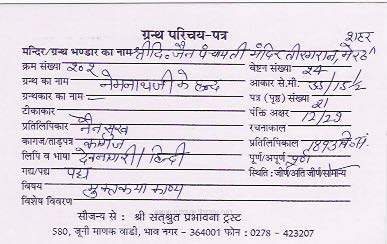 ग्रन्थ परिचय-पत्र
शहर
मन्दिर/ग्रन्थ भण्डार का नाम श्री दि॰ जैन पंचायती मंदिर तीरगरान, मेरठ
क्रम संख्या २०२ वेष्टन संख्या 24
ग्रन्थ का नाम नेमनाथजी के छन्द आकार से.मी. 33/15/2
ग्रन्थकार का नाम — पत्र (पृष्ठ) संख्या 21
टीकाकार — पंक्ति अक्षर 12/29
प्रतिलिपिकार नैनसुख रचनाकाल
कागज/ताड़पत्र कागज प्रतिलिपिकाल 1893 वि.सं.
लिपि व भाषा देवनागरी/हिन्दी पूर्ण/अपूर्ण पूर्ण
गद्य/पद्य पद्य स्थिति : जीर्ण/अति जीर्ण/सामान्य
विषय मुक्तकथा काव्य
विशेष विवरण
सौजन्य से : श्री सत्श्रुत प्रभावना ट्रस्ट
580, जूनी माणक वाडी, भाव नगर - 364001 फोन : 0278 - 423207